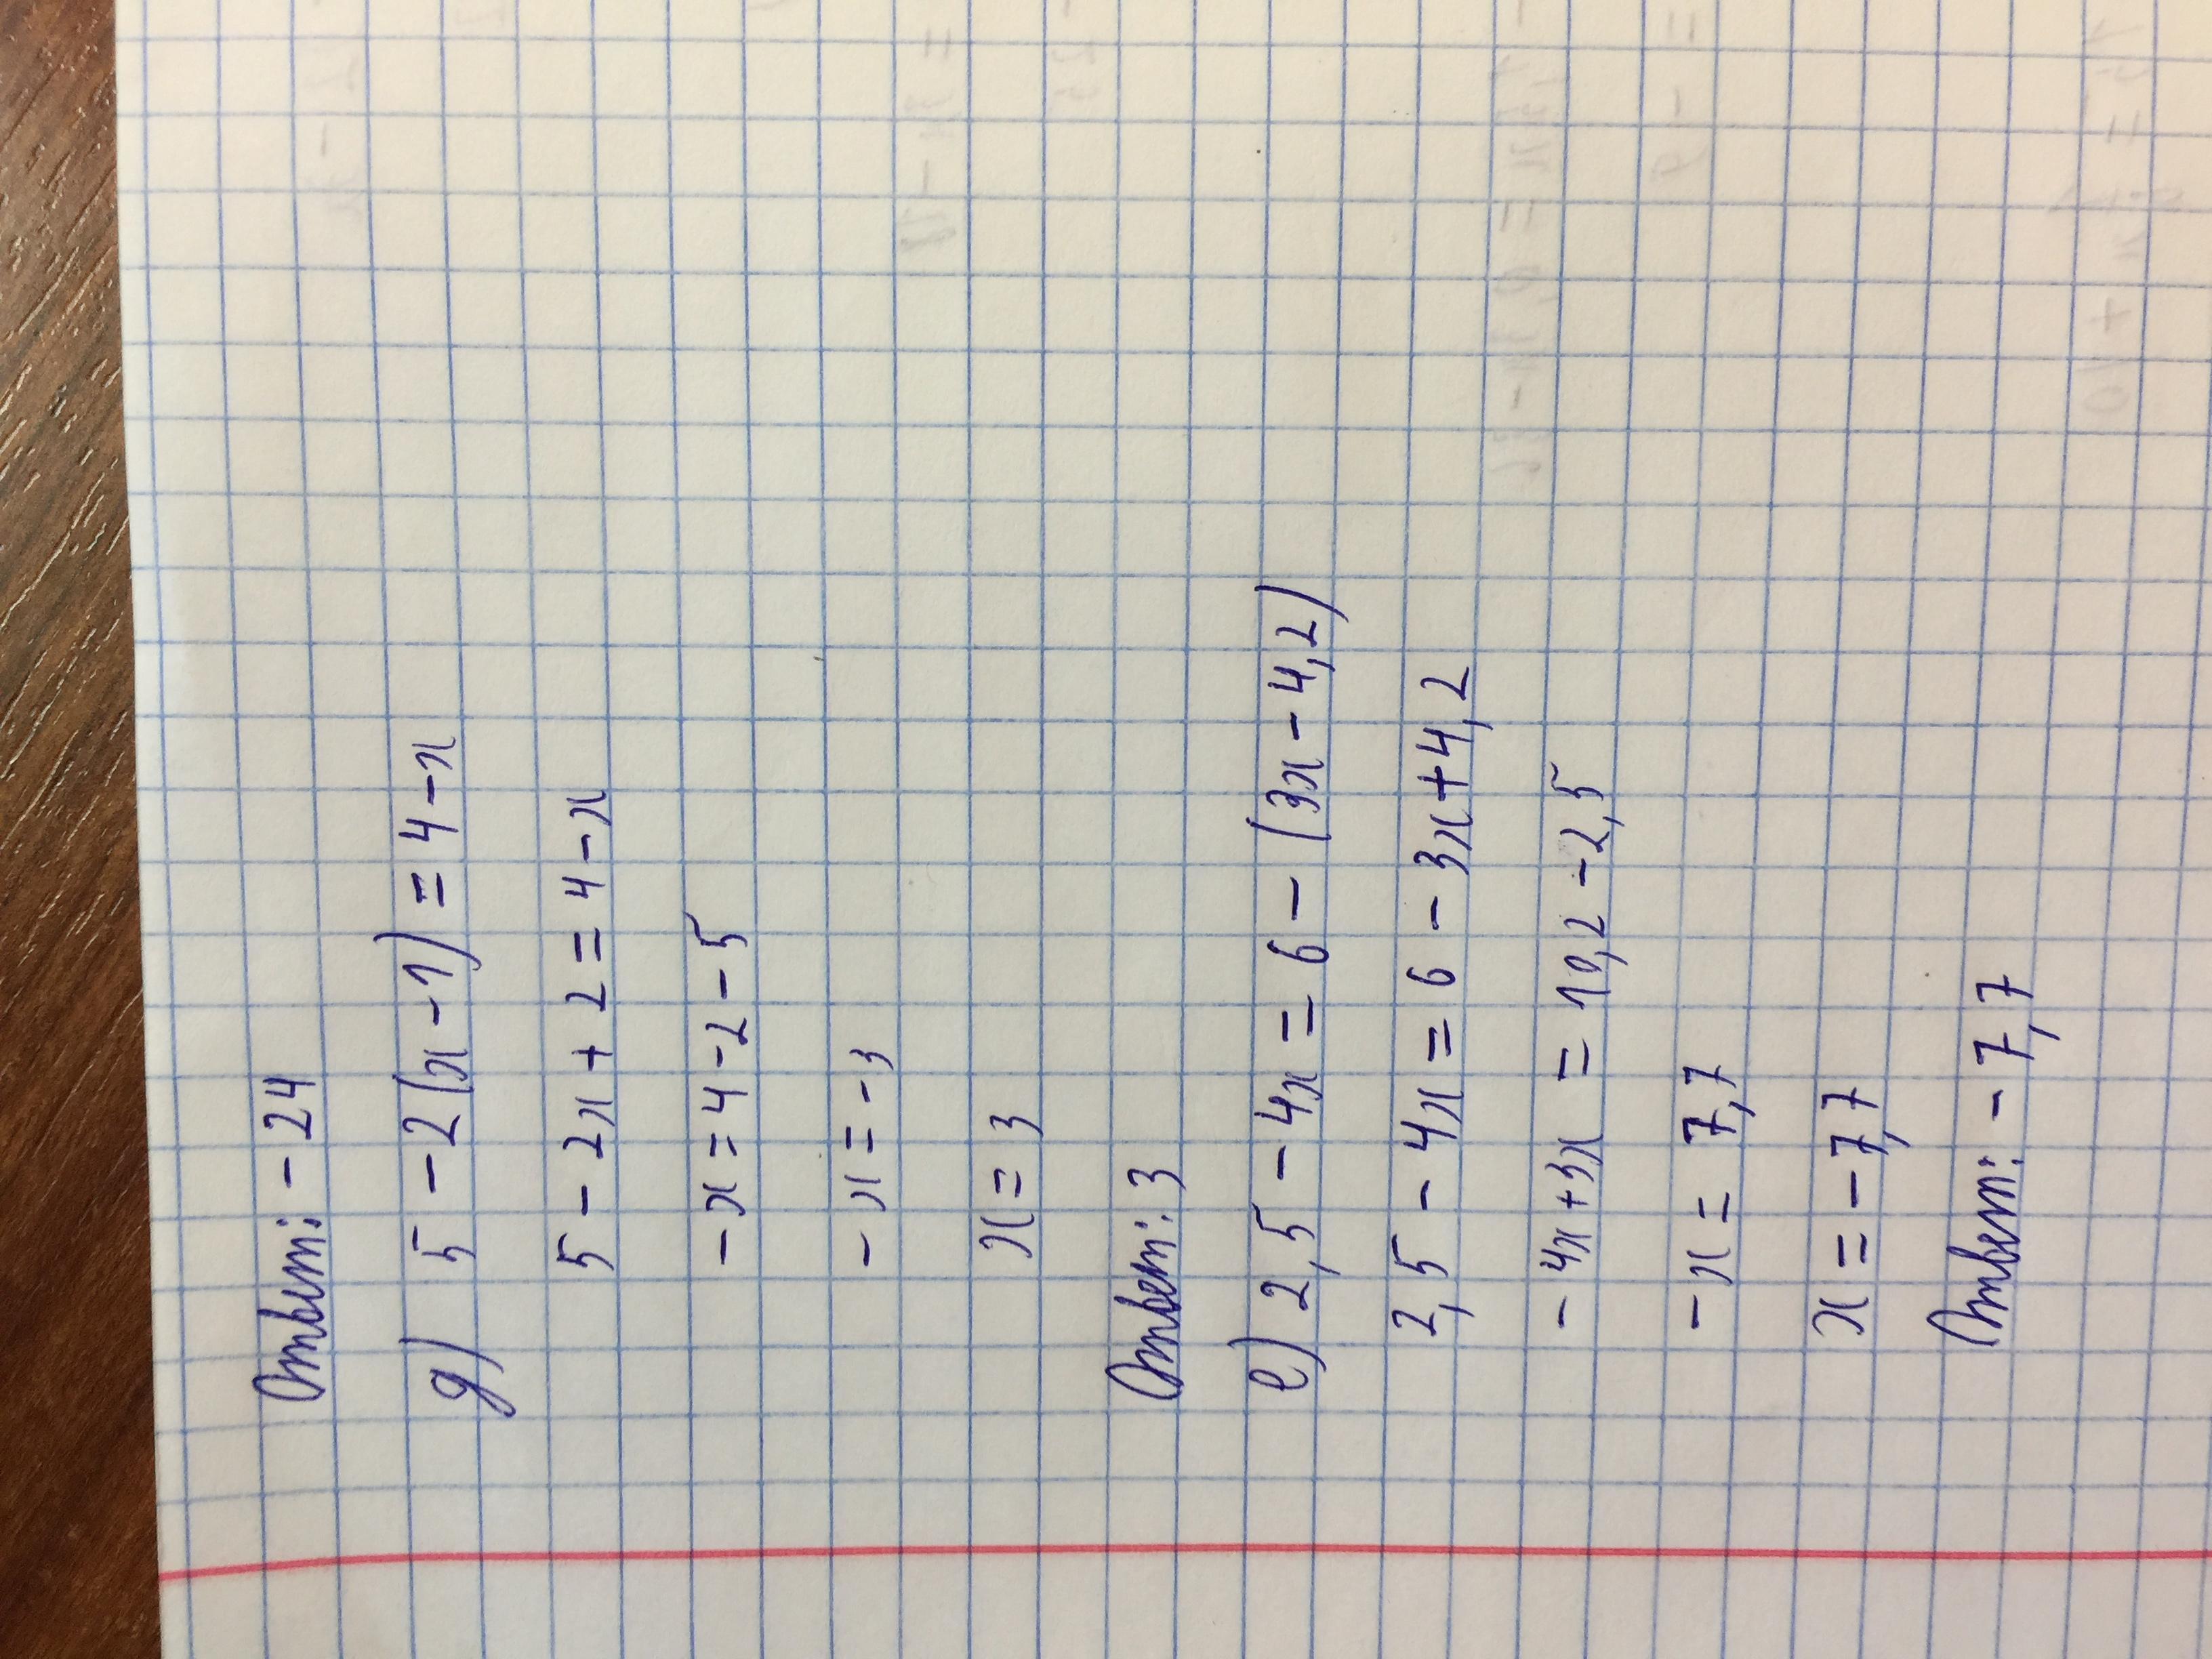 Ответ: -24
д) 5 - 2(x - 1) = 4 - x
5 - 2x + 2 = 4 - x
-x = 4 - 2 - 5
-x = -3
x = 3
Ответ: 3
е) 2,5 - 4x = 6 - (3x - 4,2)
2,5 - 4x = 6 - 3x + 4,2
-4x + 3x = 10,2 - 2,5
-x = 7,7
x = -7,7
Ответ: -7,7